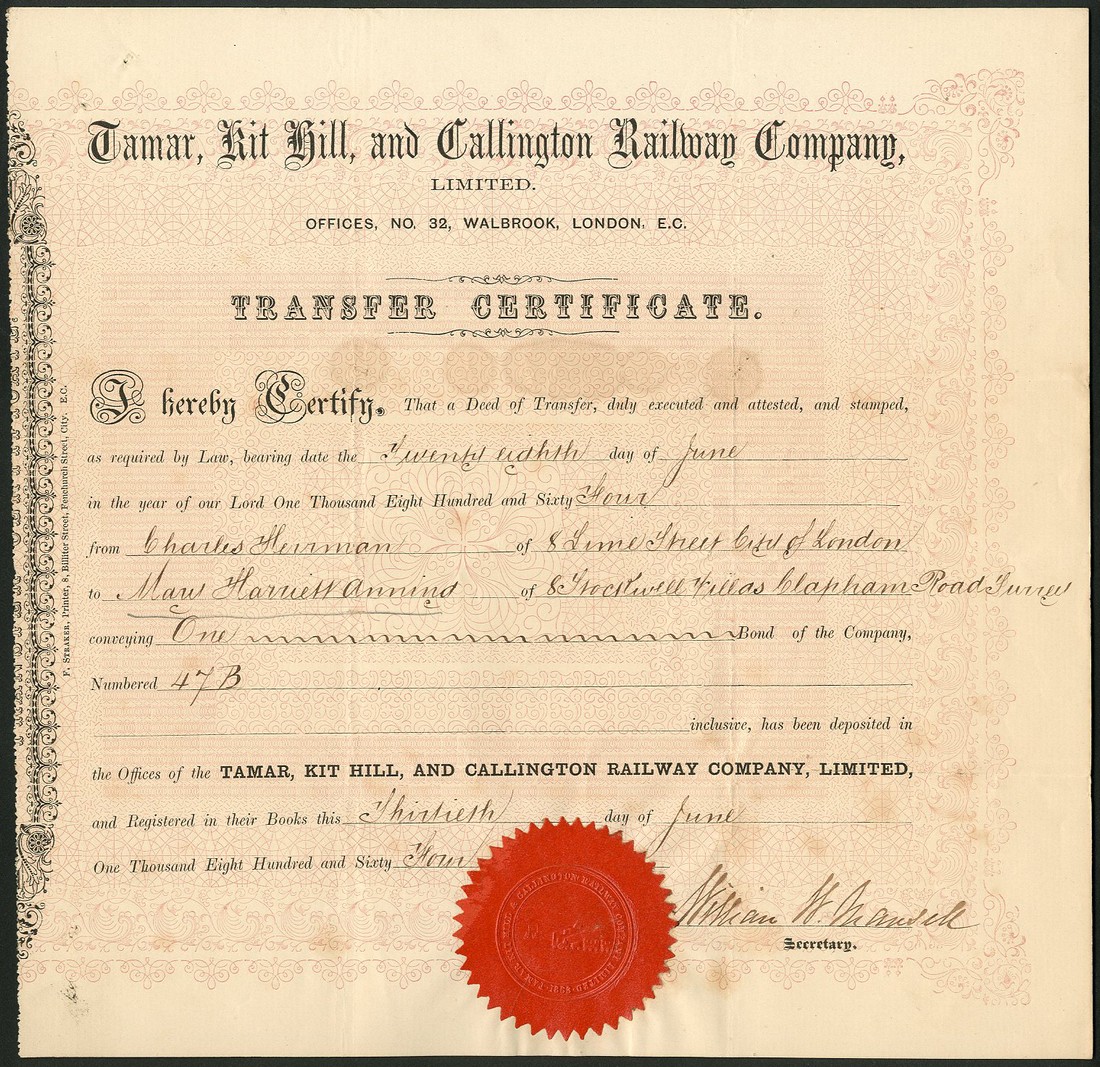 Tamar, Kit Hill, and Callington Railway Company,
LIMITED.
OFFICES, NO. 32, WALBROOK, LONDON, E.C.
TRANSFER CERTIFICATE.
I hereby Certify, That a Deed of Transfer, duly executed and attested, and stamped,
as required by Law, bearing date the Twenty eighth day of June
in the year of our Lord One Thousand Eight Hundred and Sixty Four
from Charles Herrman of 8 Lime Street City of London
to Mary Harriett Anning of 8 Stockwell Villas Clapham Road Surrey
conveying One Bond of the Company,
Numbered 47 B
inclusive, has been deposited in
the Offices of the TAMAR, KIT HILL, AND CALLINGTON RAILWAY COMPANY, LIMITED,
and Registered in their Books this Thirtieth day of June
One Thousand Eight Hundred and Sixty Four
William W. Mansell
Secretary.
F. STRAKER, Printer, 8, Billiter Street, Fenchurch Street, City. E.C.
KIT HILL & CALLINGTON RAILWAY COMPANY LIMITED